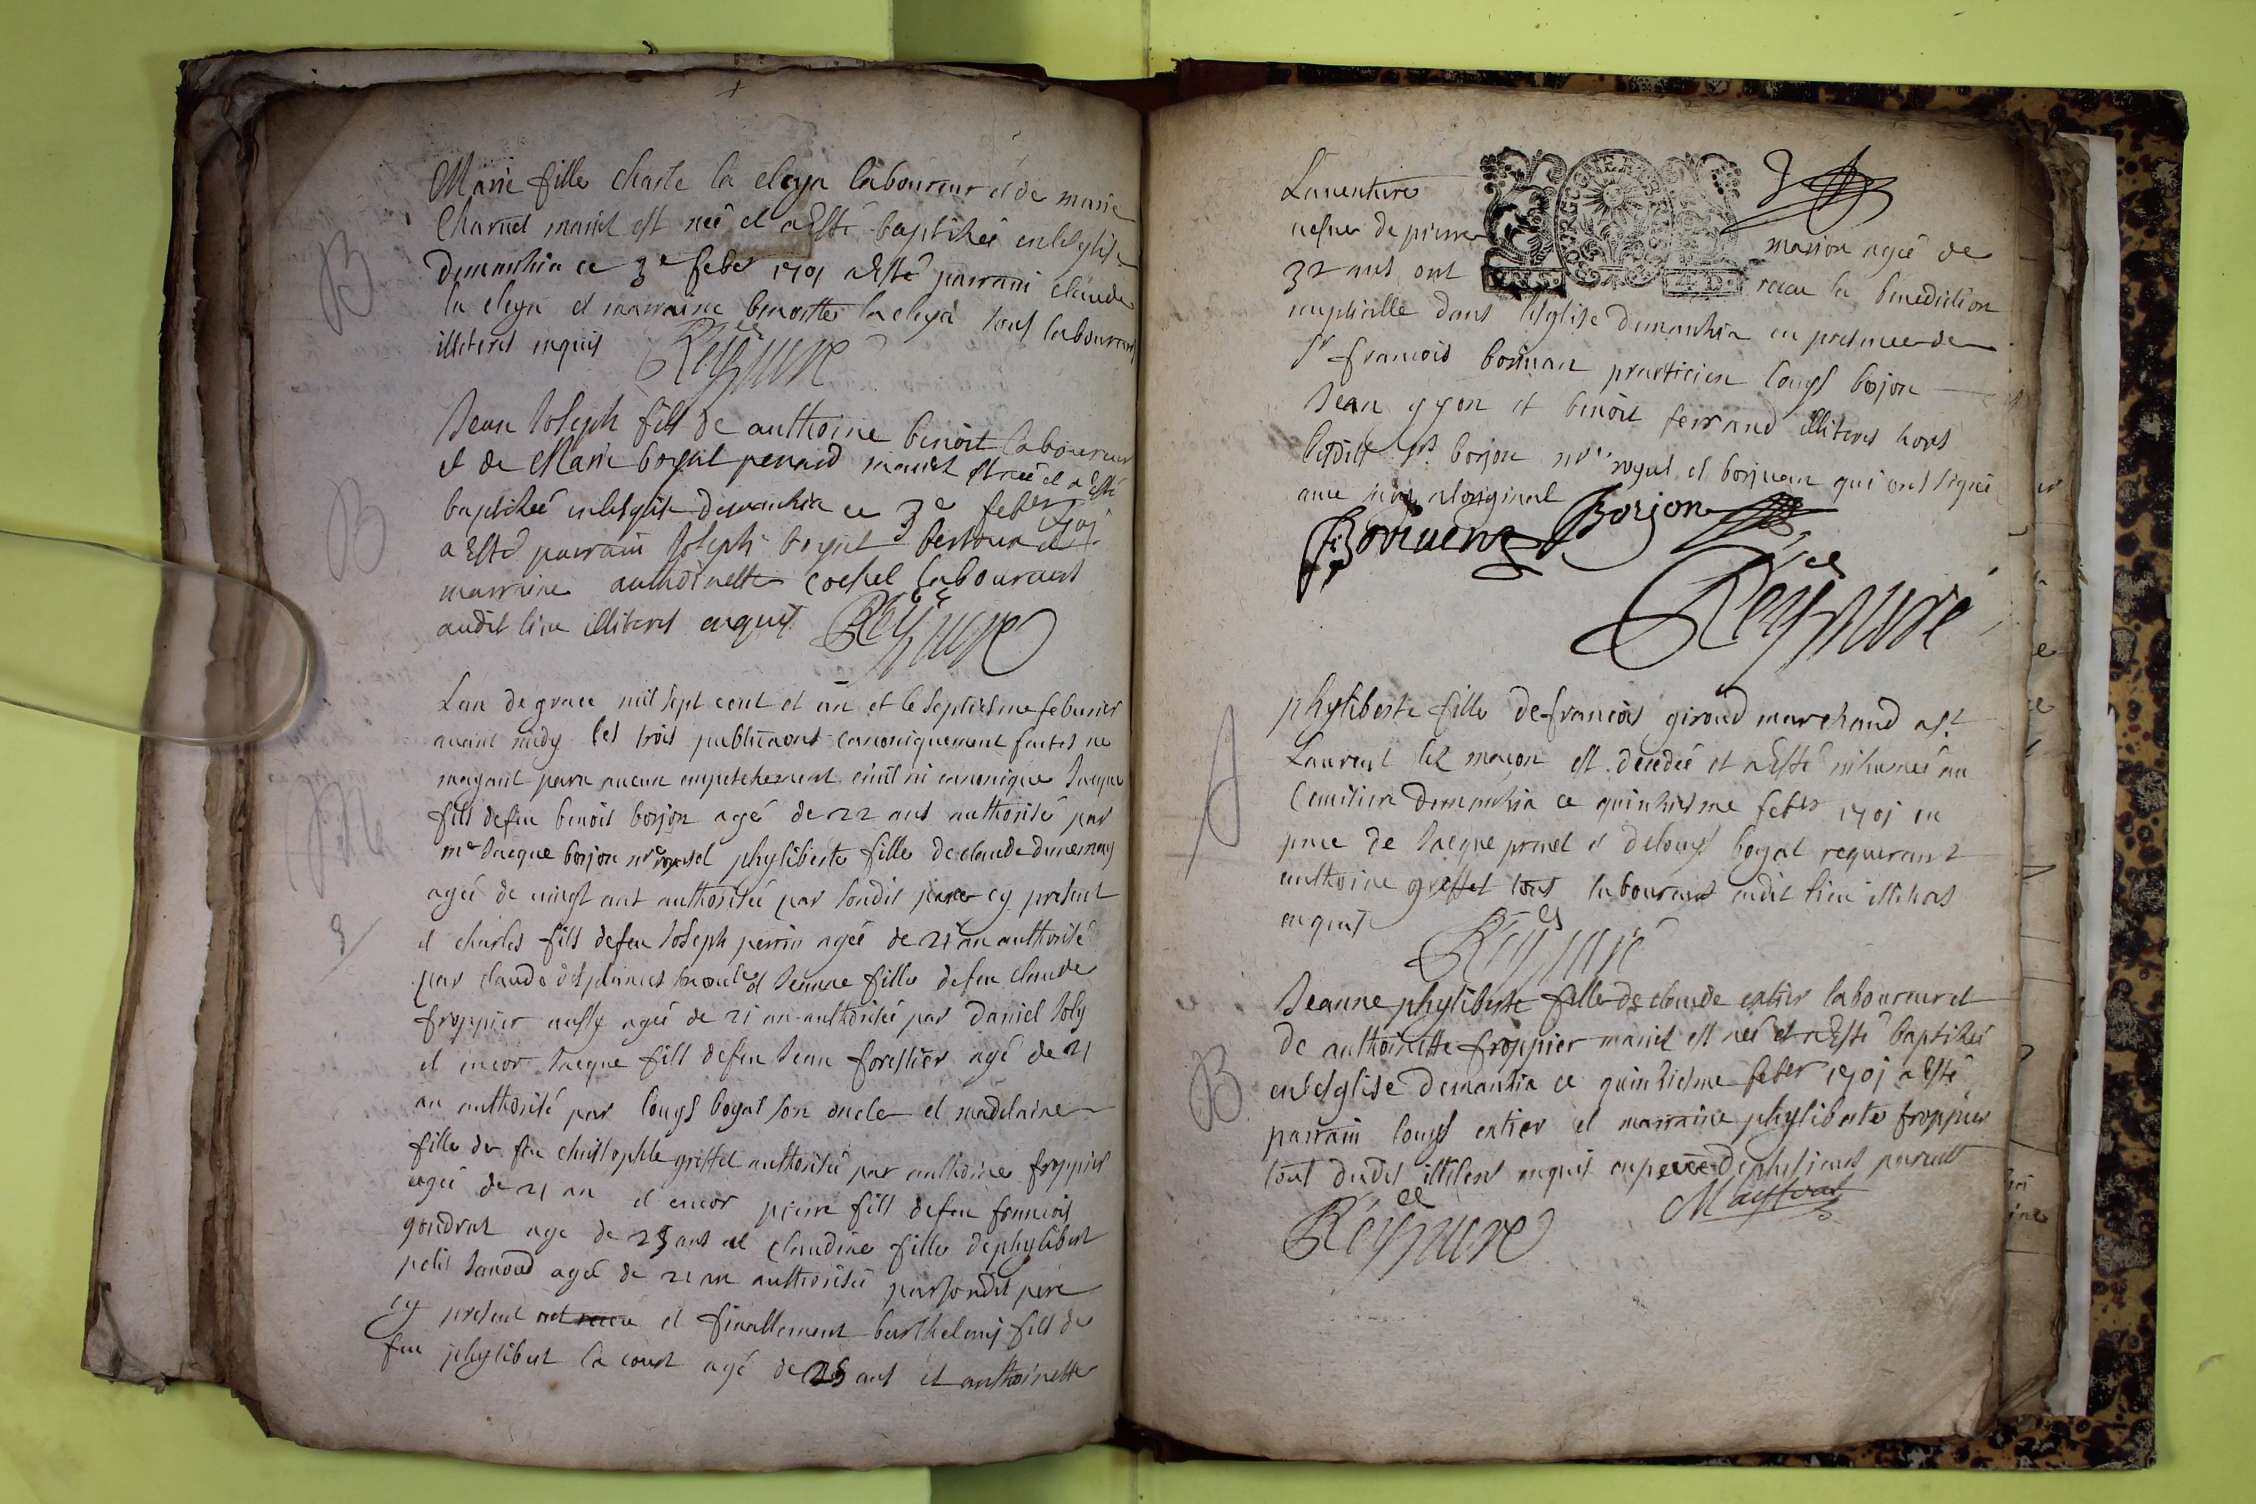 Marie fille charle la cleya laboureur et de marie
Charnel mariet est neé et a Esté baptiseé en leglise
demanhia ce 3e feber 1701 a Esté parrain claude
la cleya et marraine benoitte la cleya tous laboureurs
illiteres enquis Reyssuire
B
Jean Joseph fils de anthoine benoit laboureur
et de Marie boyat penard mariet est neé et a Esté
baptiseé en lesglise demanhia ce 3e feber 1701
a Esté parrain Joseph boyat et
marraine anthoinette cochet laboureurs
audit lieu illiteres enquis Reyssuire
B
Lan de grace mil sept cent et un et le septiesme febvrier
avant midy les trois publicaons canoniquement faites ne
mayant paru aucun empeschement civil ni canonique Jacque
fils de feu benoit borjon agé de 22 ans authorisé par
me Jacque borjon nre royal et phyliberte fille de claude dunemoy
ageé de vingt ans authoriseé par sondit pere cy present
et charles fils de feu Joseph perrin ageé de 21 an authorisé
par claude desplanches et Jeanne fille de feu claude
froppier aussy ageé de 21 an authoriseé par Daniel Joly
et encor Jacque fils de feu Jean forestier agé de 21
an authorisé par Louys boyat son oncle et madelaine
fille de feu christophle griffet authoriseé par anthoine froppier
ageé de 21 an et encor pierre fils de feu francois
gondrat age de 25 ans et claudine fille de phylibert
petit Janoud ageé de 21 an authoriseé par sondit pere
cy present et finallement barthelemy fils de
feu phylibert la court agé de 25 ans et anthoinette
Laventure
vefve de pierre masson ageé de
32 ans ont receu la benediction
nuptialle dans lesglise demanhia en presence de
sr francois borjuan practicien Louys borjon
Jean gyon et benoit ferrand illiteres hors
lesdits srs borjon nre royal et borjuan qui ont signé
avec moy a loriginal
Borjon
Reyssuire
phyliberte fille de francois giroud marchand a st
Laurent lez macon est decedeé et a Esté inhumeé au
Cemitiere demanhia ce quinhiesme feber 1701 en
pnce de Jacque et de Louys boyat requerant
anthoine griffet tous laboureurs audit lieu illiteres
enquis Reyssuire
Jeanne phyliberte fille de claude entier laboureur et
de anthoinette froppier mariet est neé et a Esté baptiseé
en lesglise demanhia ce quinhiesme feber 1701 a Esté
B
parrain Louys entier et marraine phyliberte froppier
tous dudit illiteres enquis en pnce de plusieurs parents
Reyssuire